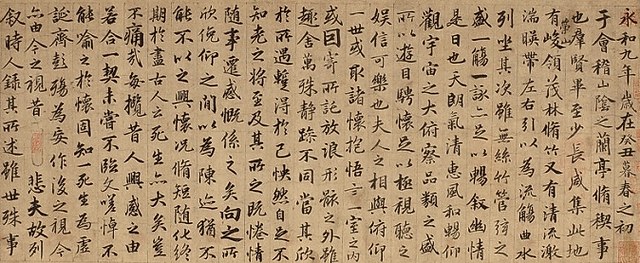 永和九年歲在癸丑暮春之初
于會稽山陰之蘭亭脩禊事
也群賢畢至少長咸集此地
有崇山峻領茂林脩竹又有清流激
湍暎帶左右引以為流觴曲水
列坐其次雖無絲竹管弦之
盛一觴一詠亦足以暢敘幽情
是日也天朗氣清惠風和暢仰
觀宇宙之大俯察品類之盛
所以遊目騁懷足以極視聽之
娛信可樂也夫人之相與俯仰
一世或取諸懷抱悟言一室之內
或因寄所託放浪形骸之外雖
趣舍萬殊靜躁不同當其欣
於所遇暫得於己怏然自足不
知老之將至及其所之既惓情
隨事遷感慨係之矣向之所
欣俛仰之間以為陳迹猶不
能不以之興懷況脩短隨化終
期於盡古人云死生亦大矣豈
不痛哉每攬昔人興感之由
若合一契未嘗不臨文嗟悼不
能喻之於懷固知一死生為虛
誕齊彭殤為妄作後之視今
亦由今之視昔悲夫故列
敘時人錄其所述雖世殊事